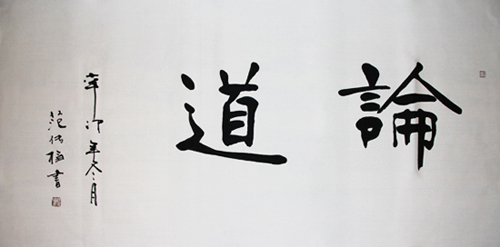 論道
辛卯年冬月
范書